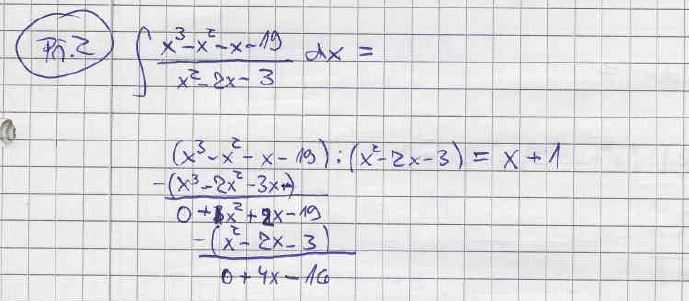 Př.2 ∫ (x³-x²-x-19)/(x²-2x-3) dx =
(x³-x²-x-19):(x²-2x-3)=x+1
-(x³-2x²-3x)
0+x²+2x-19
-(x²-2x-3)
0+4x-16